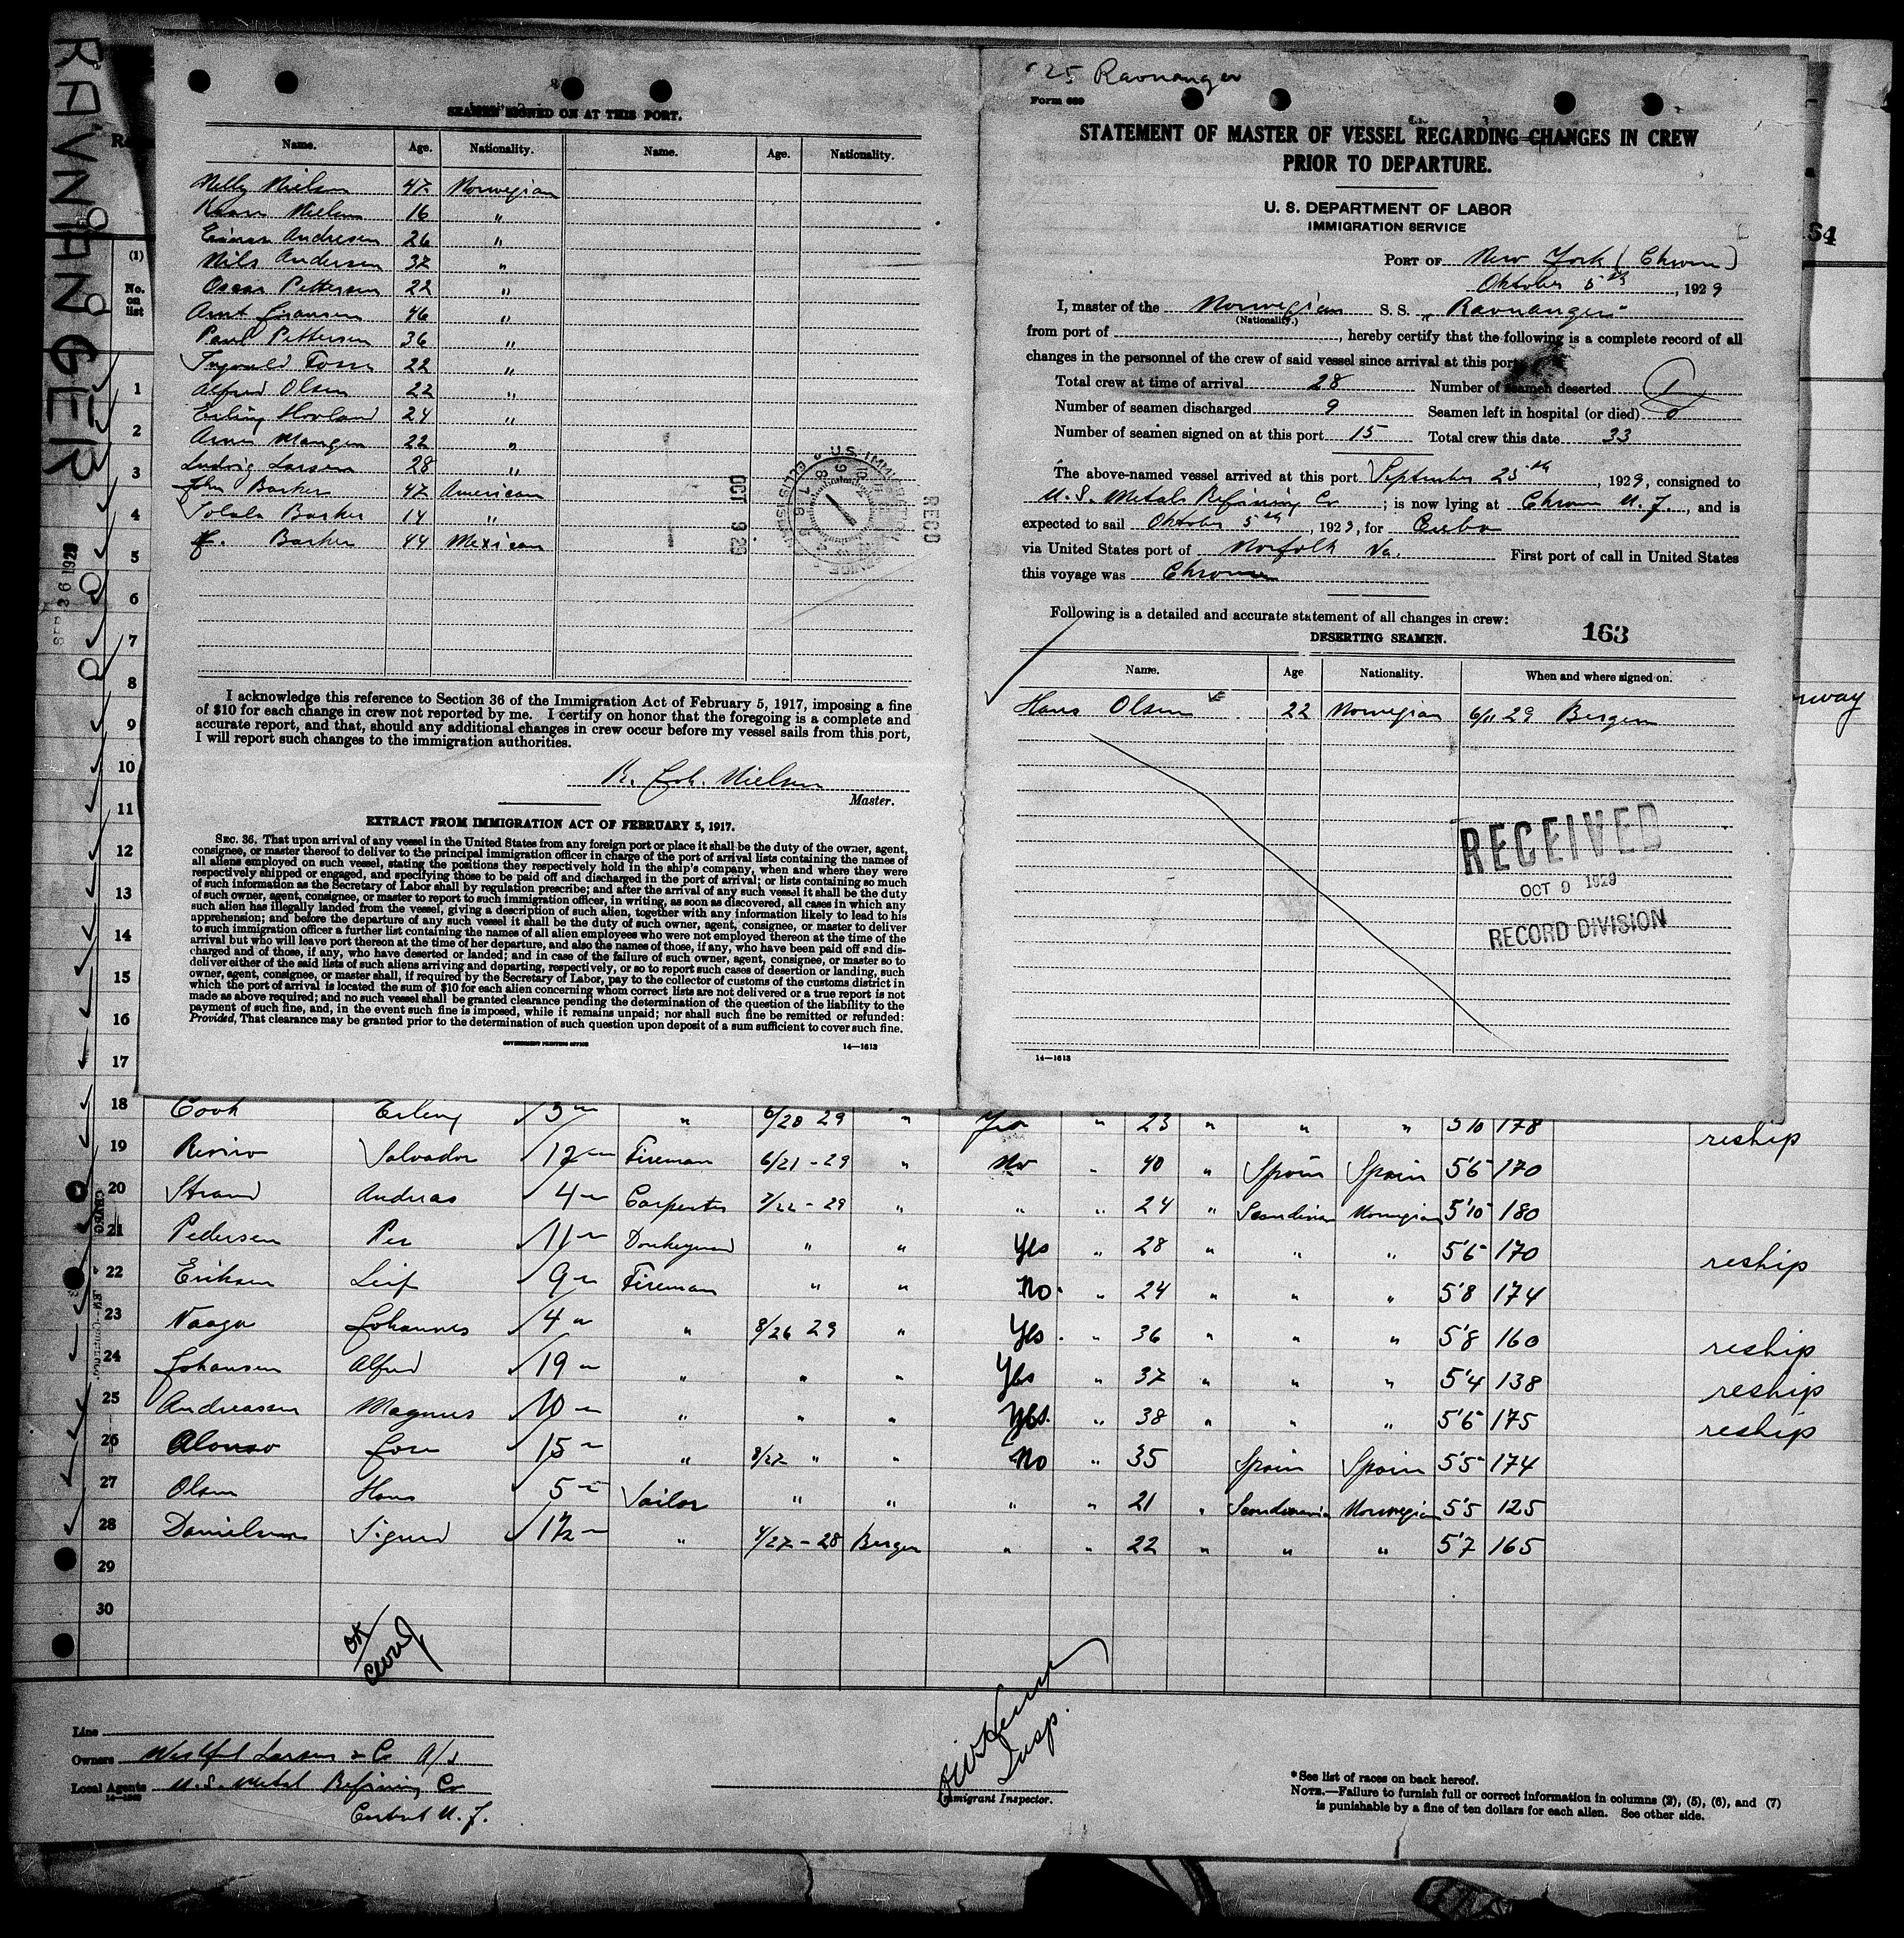 RAVNANGER
SEAMEN SIGNED ON AT THIS PORT.
Name. Age. Nationality. Name. Age. Nationality.
Nelly Nielsen 47 Norwegian
Nielsen 16 "
Einar Andresen 26 "
Nils Andersen 37 "
Oscar Pettersen 22 "
Arnt 46 "
Paul Pettersen 36 "
Foss 22 "
Alfred Olsen 22 "
Erling Hovland 24 "
Arne Mangen 22 "
Ludvig Larsen 28 "
John Barker 47 American
Barker 14 "
Barker 44 Mexican
REC'D
OCT 9 29
I acknowledge this reference to Section 36 of the Immigration Act of February 5, 1917, imposing a fine
of $10 for each change in crew not reported by me. I certify on honor that the foregoing is a complete and
accurate report, and that, should any additional changes in crew occur before my vessel sails from this port,
I will report such changes to the immigration authorities.
K. Joh. Nielsen
Master.
EXTRACT FROM IMMIGRATION ACT OF FEBRUARY 5, 1917.
SEC. 36. That upon arrival of any vessel in the United States from any foreign port or place it shall be the duty of the owner, agent,
consignee, or master thereof to deliver to the principal immigration officer in charge of the port of arrival lists containing the names of
all aliens employed on such vessel, stating the positions they respectively hold in the ship's company, when and where they were
respectively shipped or engaged, and specifying those to be paid off and discharged in the port of arrival; or lists containing so much
of such information as the Secretary of Labor shall by regulation prescribe; and after the arrival of any such vessel it shall be the duty
of such owner, agent, consignee, or master to report to such immigration officer, in writing, as soon as discovered, all cases in which any
such alien has illegally landed from the vessel, giving a description of such alien, together with any information likely to lead to his
apprehension; and before the departure of any such vessel it shall be the duty of such owner, agent, consignee, or master to deliver
to such immigration officer a further list containing the names of all alien employees who were not employed thereon at the time of the
arrival but who will leave port thereon at the time of her departure, and also the names of those, if any, who have been paid off and dis-
charged and of those, if any, who have deserted or landed; and in case of the failure of such owner, agent, consignee, or master so to
deliver either of the said lists of such aliens arriving and departing, respectively, or so to report such cases of desertion or landing, such
owner, agent, consignee, or master shall, if required by the Secretary of Labor, pay to the collector of customs of the customs district in
which the port of arrival is located the sum of $10 for each alien concerning whom correct lists are not delivered or a true report is not
made as above required; and no such vessel shall be granted clearance pending the determination of the question of the liability to the
payment of such fine, and, in the event such fine is imposed, while it remains unpaid; nor shall such fine be remitted or refunded:
Provided, That clearance may be granted prior to the determination of such question upon deposit of a sum sufficient to cover such fine.
GOVERNMENT PRINTING OFFICE 14—1613
'25 Ravnanger
Form 689
STATEMENT OF MASTER OF VESSEL REGARDING CHANGES IN CREW
PRIOR TO DEPARTURE.
U. S. DEPARTMENT OF LABOR
IMMIGRATION SERVICE
PORT OF New York (Chrome)
Oktober 5th, 1929
I, master of the Norwegian S. S. "Ravnanger"
(Nationality.)
from port of , hereby certify that the following is a complete record of all
changes in the personnel of the crew of said vessel since arrival at this port
Total crew at time of arrival 28 Number of seamen deserted 1
Number of seamen discharged 9 Seamen left in hospital (or died)
Number of seamen signed on at this port 15 Total crew this date 33
The above-named vessel arrived at this port September 25th, 1929, consigned to
U. S. Metals Refining Co ; is now lying at Chrome N. J., and is
expected to sail Oktober 5th, 1929, for Cuba
via United States port of Norfolk Va. First port of call in United States
this voyage was Chrome
Following is a detailed and accurate statement of all changes in crew:
DESERTING SEAMEN. 163
Name. Age Nationality. When and where signed on.
Hans Olsen 22 Norwegian 6/11 29 Bergen
RECEIVED
OCT 9 1929
RECORD DIVISION
14—1613
(1)
No.
on
list
1
2
3
4
5
6
7
8
9
10
11
12
13
14
15
16
17
18 Cook Erling 3 " 6/20 29 " Yes " 23 " " " 5'10 178 reship
19 Salvador 12 Fireman 6/21-29 " No " 40 " Spain Spain 5'6 170
20 Strand Andreas 4 Carpenter 7/22-29 " " " 24 " Scandinav Norwegian 5'10 180
21 Pedersen Per 11 Donkeyman " " Yes " 28 " " " 5'6 170 reship
22 Eriksen Leif 9 Fireman " " No " 24 " " " 5'8 174
23 Vaage Johannes 4 " 8/26 29 " Yes " 36 " " " 5'8 160 reship
24 Johansen Alfred 19 " " " Yes " 37 " " " 5'4 138 reship
25 Andreassen Magnus 10 " " " Yes " 38 " " " 5'6 175 reship
26 Alonso Jose 15 " 8/27 " " No " 35 Spain Spain 5'5 174
27 Olsen Hans 5 Sailor " " " " 21 " Scandinavia Norwegian 5'5 125
28 Danielsen Sigurd 1½ " 4/27-28 Bergen " " 22 " " " 5'7 165
29
30
OK
Line
Owners Westfal Larsen & Co A/S
Local Agents U. S. Metal Refining Co
Carteret N. J.
Insp.
Immigrant Inspector.
*See list of races on back hereof.
NOTE.—Failure to furnish full or correct information in columns (2), (5), (6), and (7)
is punishable by a fine of ten dollars for each alien. See other side.